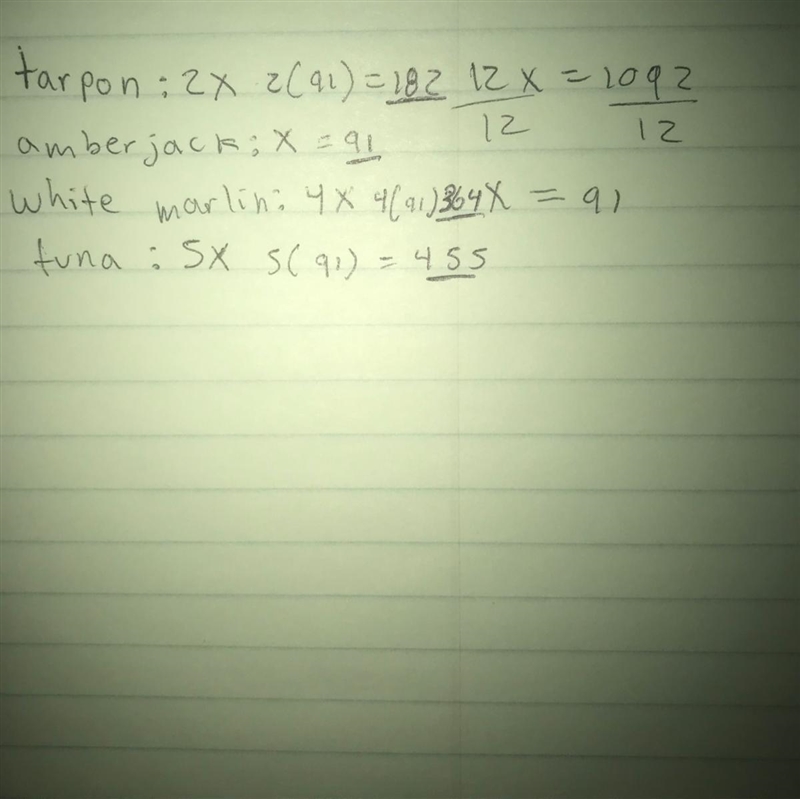 tarpon: 2x 2(91) = 182 12x = 1092
12 12
amberjack: x = 91
white marlin: 4x 4(91) 364 x = 91
tuna: 5x 5(91) = 455